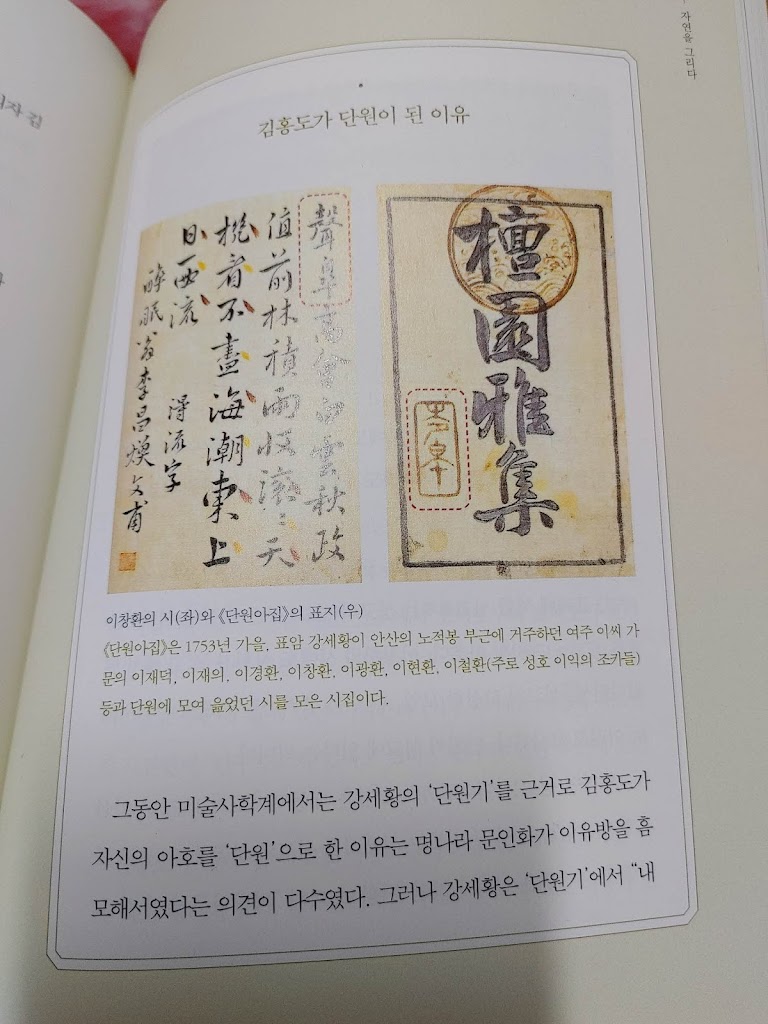 자연을 그리다
김홍도가 단원이 된 이유
檀園雅集
高會白雲秋政
值前林積雨收滾〻天
看不盡海潮東上
日西流 得流字
醉眠翁李昌煥文甫
이창환의 시(좌)와 《단원아집》의 표지(우)
《단원아집》은 1753년 가을, 표암 강세황이 안산의 노적봉 부근에 거주하던 여주 이씨 가
문의 이재덕, 이재의, 이경환, 이창환, 이광환, 이현환, 이철환(주로 성호 이익의 조카들)
등과 단원에 모여 읊었던 시를 모은 시집이다.
그동안 미술사학계에서는 강세황의 ‘단원기’를 근거로 김홍도가
자신의 아호를 ‘단원’으로 한 이유는 명나라 문인화가 이유방을 흠
모해서였다는 의견이 다수였다. 그러나 강세황은 ‘단원기’에서 “내